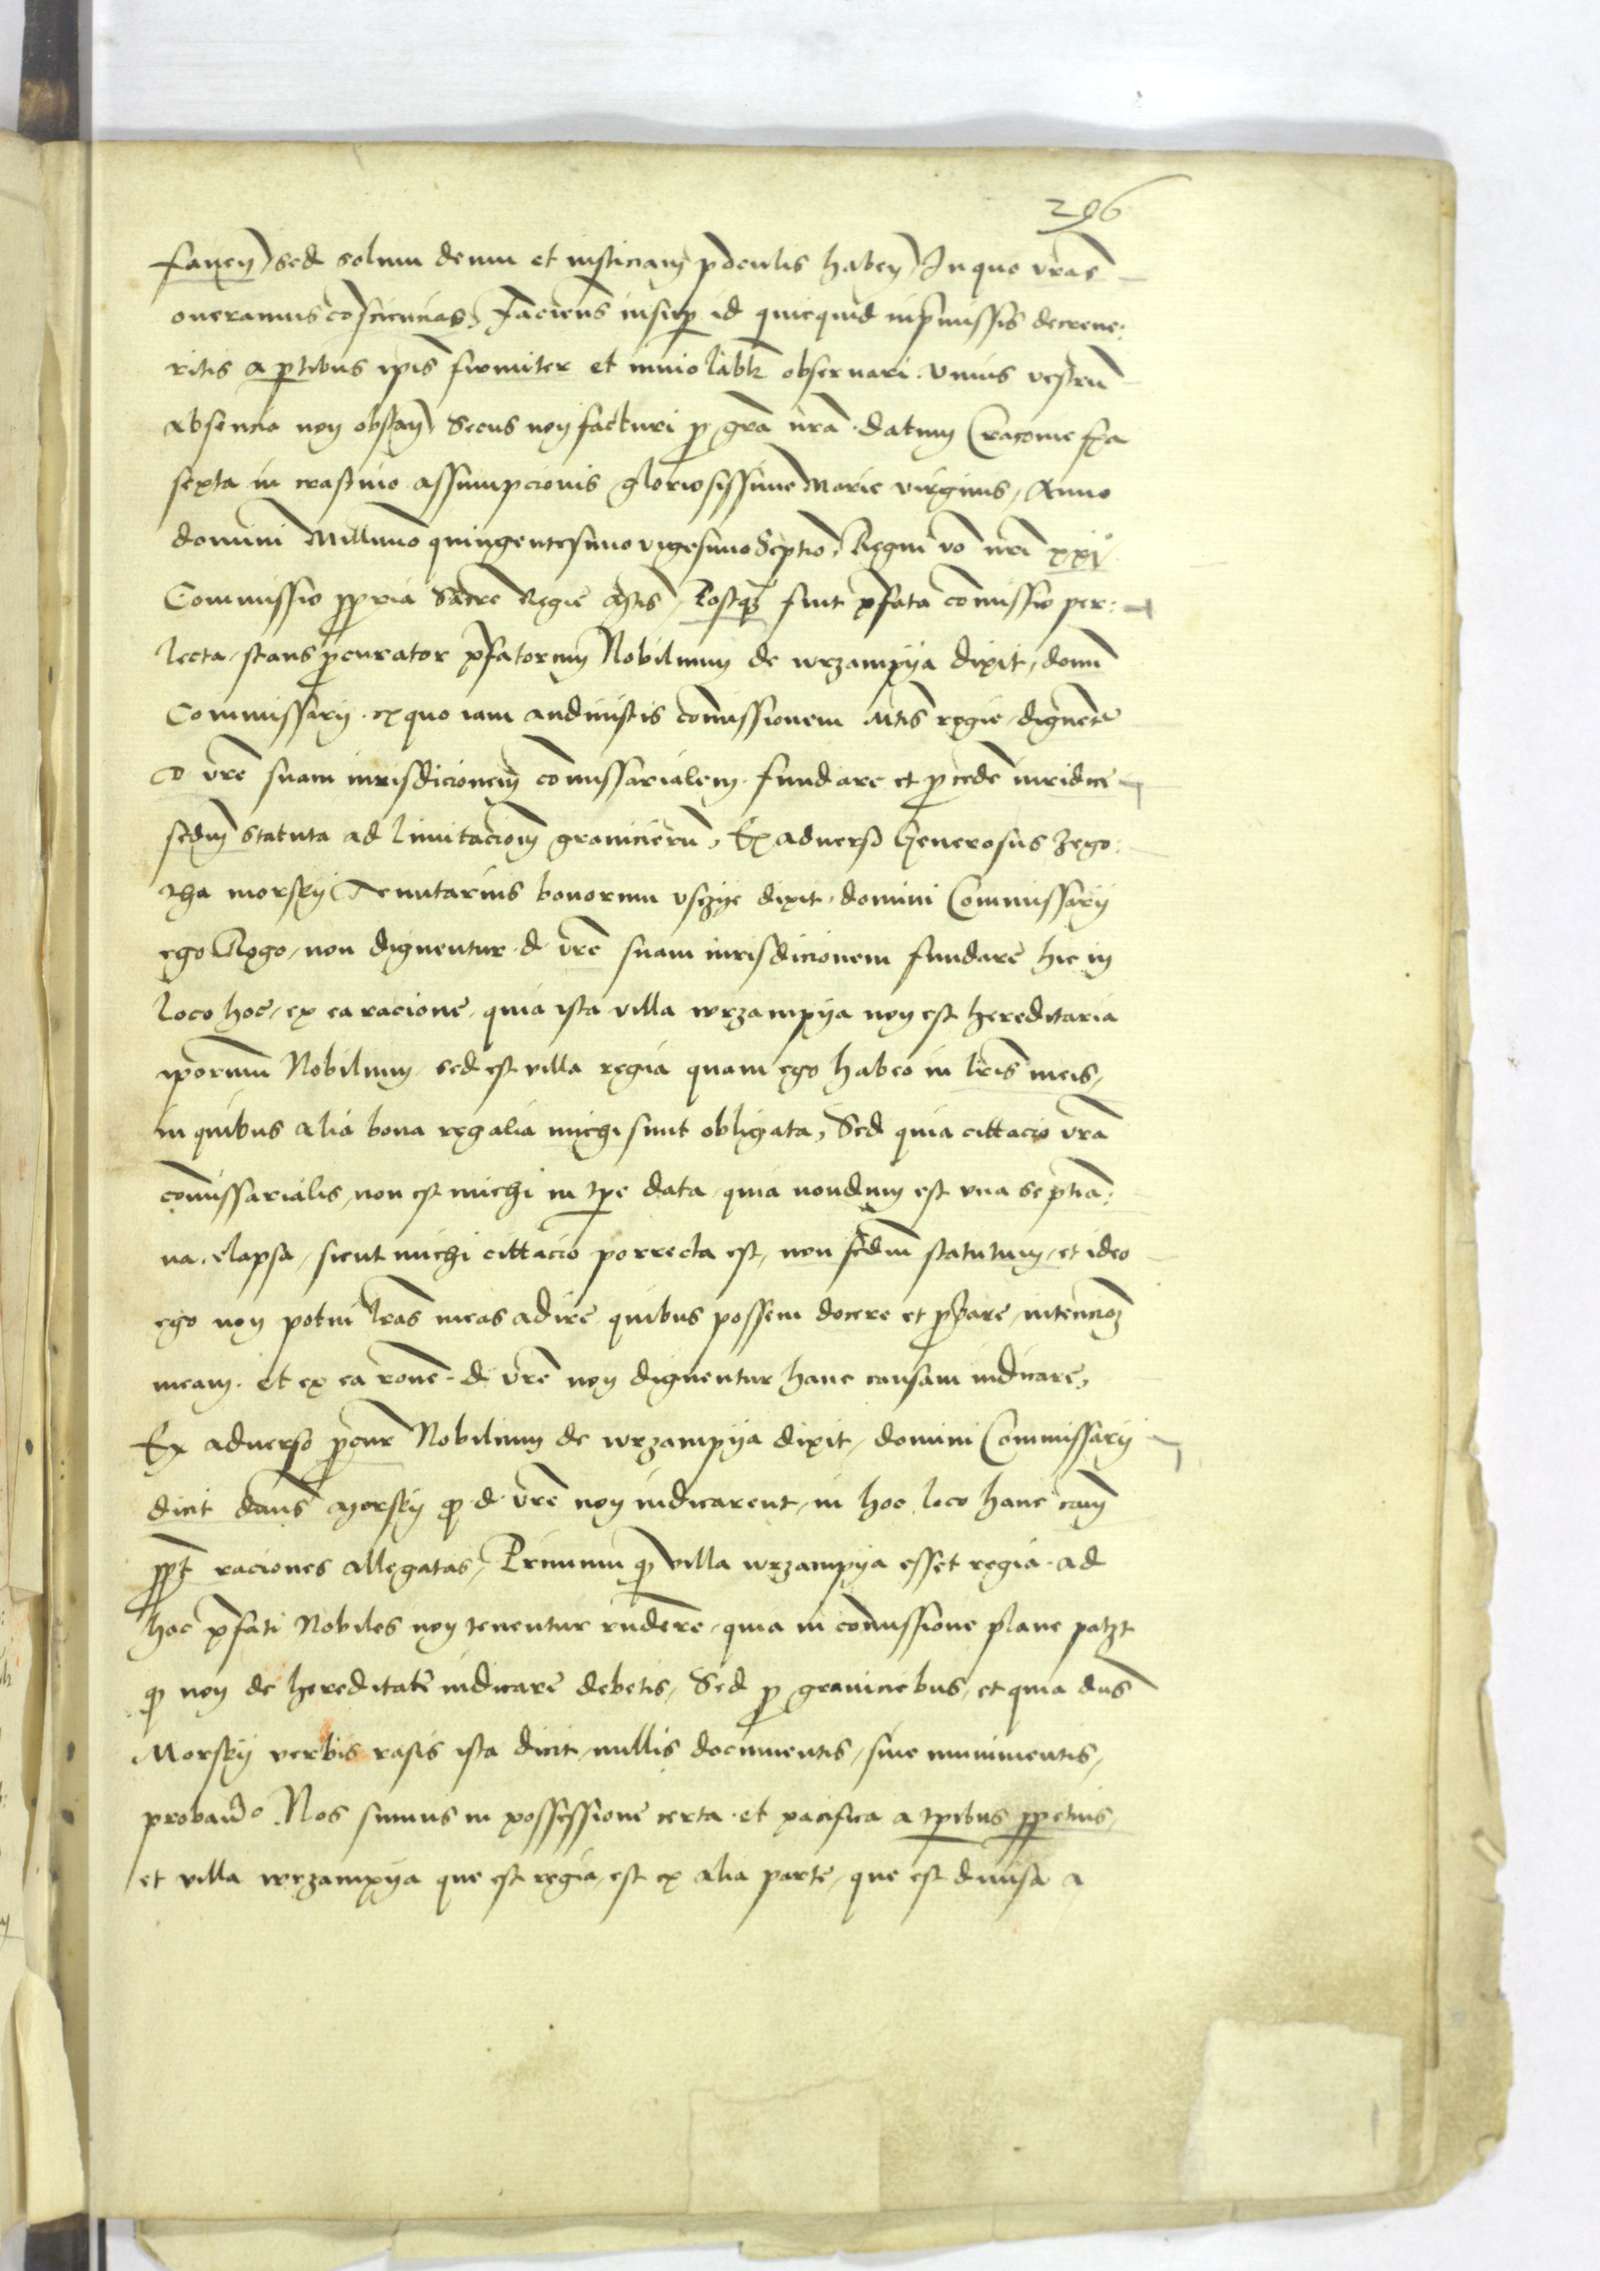 296
fauen) sed solum deum et iusticiam p̄ oculis haben) In quo vras̄
oneramus cō̄sciencias, Facien̄s insup̱ id quicquid inp̄missis decreue:
ritis a p̱tibus ip̄is firmiter et inuiolābłr obseruari. Vnius vestrū
absencia non obstan) Secus non facturi p̱ grā nrā. datum Cracouie fe̱a
sexta in crastino assumpcionis gloriosissime Marie virginis, Anno
domini Mill̄imo quingentesimo vigesimo Septi̅o, Regni vo nr̄i xxi°
Commissio pp̱ria Sacre Regie M̄tis, Postq̱ȝ fuit p̄fata cōmissio per:
lecta, stans p̱curator p̄fatorum Nobilium de wrzampya dixit, domī
Commissarÿ. exquo iam audiuistis comissionem M̄tis regie, dignēt̄
D vrē suam iurisdicionem̄ comissarialem. fundare et p̱cede̅ iuridice
sedm̄ statuta ad limitacionem̄ granicierū, Ex aduerso Generosus Zego:
tha morsky Tenutarius bonorum vsczye dixit, domini Commissarÿ
ego Rogo, non dignentur. d. vrē suam iurisdicionem fundare hic in
loco hoc, ex ea racione, quia ista villa wrzampya non est hereditaria
ip̄orum Nobilium, sed est villa regia quam ego habeo in lr̄is meis,
in quibus alia bona regalia michi sunt obligata, Sed quia cittacio vrā
comissarialis, non est michi in tp̱e data, quia nondum est vna septia:
na, elapsa, sicut michi cittacio porrecta est, non sedm̄ statutum, et ideo
ego non potui lr̄as meas adire quibus possem docere et p̱bare, intencioȝ
meam. et ex ea roñe. d. vrē non dignentur hanc causam iudicare,
Ex aduerso p̱cur̄ Nobilium de wrzampya dixit, domini Commissarÿ
dicit dnūs Morsky q̱ d. vrē non iudicarent, in hoc loco hanc cam̄
pp̱t̄ raciones allegatas, Primum q̱ villa wrzampya esset regia. ad
hoc p̄fati Nobiles non tenentur rn̄dere, quia in comissione plane patȝt
q̱ non de hereditate iudicare debetis, Sed p̱ graniciebus, et quia dn̄s
Morsky verbis rasis ista dicit, nullis documentis, siue munimentis,
proband̄o. Nos sumus in possessione certa. et pacifica a tp̱ibus pp̱etuis,
et villa wrzampya que est regia, est ex alia parte, que est diuisa a